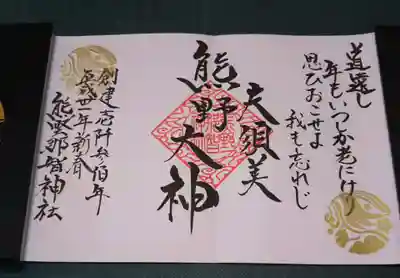 道遠し
年もいつしか老にけり
思ひおこせよ
我も忘れじ
夫須美
熊野大神
創建壱阡参佰年
平成廿一年新春
熊野那智神社